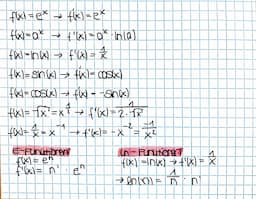 f(x) = e^x → f(x) = e^x
f(x) = a^x → f'(x) = a^x · ln(a)
f(x) = ln(x) → f'(x) = 1/x
f(x) = sin(x) → f(x) = cos(x)
f(x) = cos(x) → f(x) = -sin(x)
f(x) = √x = x^½ → f'(x) = 1/(2·√x)
f(x) = 1/x = x^-1 → f'(x) = -x^-2 = -1/x²
E-Funktionen ln-Funktionen
f(x) = e^n f(x) = ln(x) → f'(x) = 1/x
f'(x) = n' · e^n
→ ln(n) = 1/n · n'